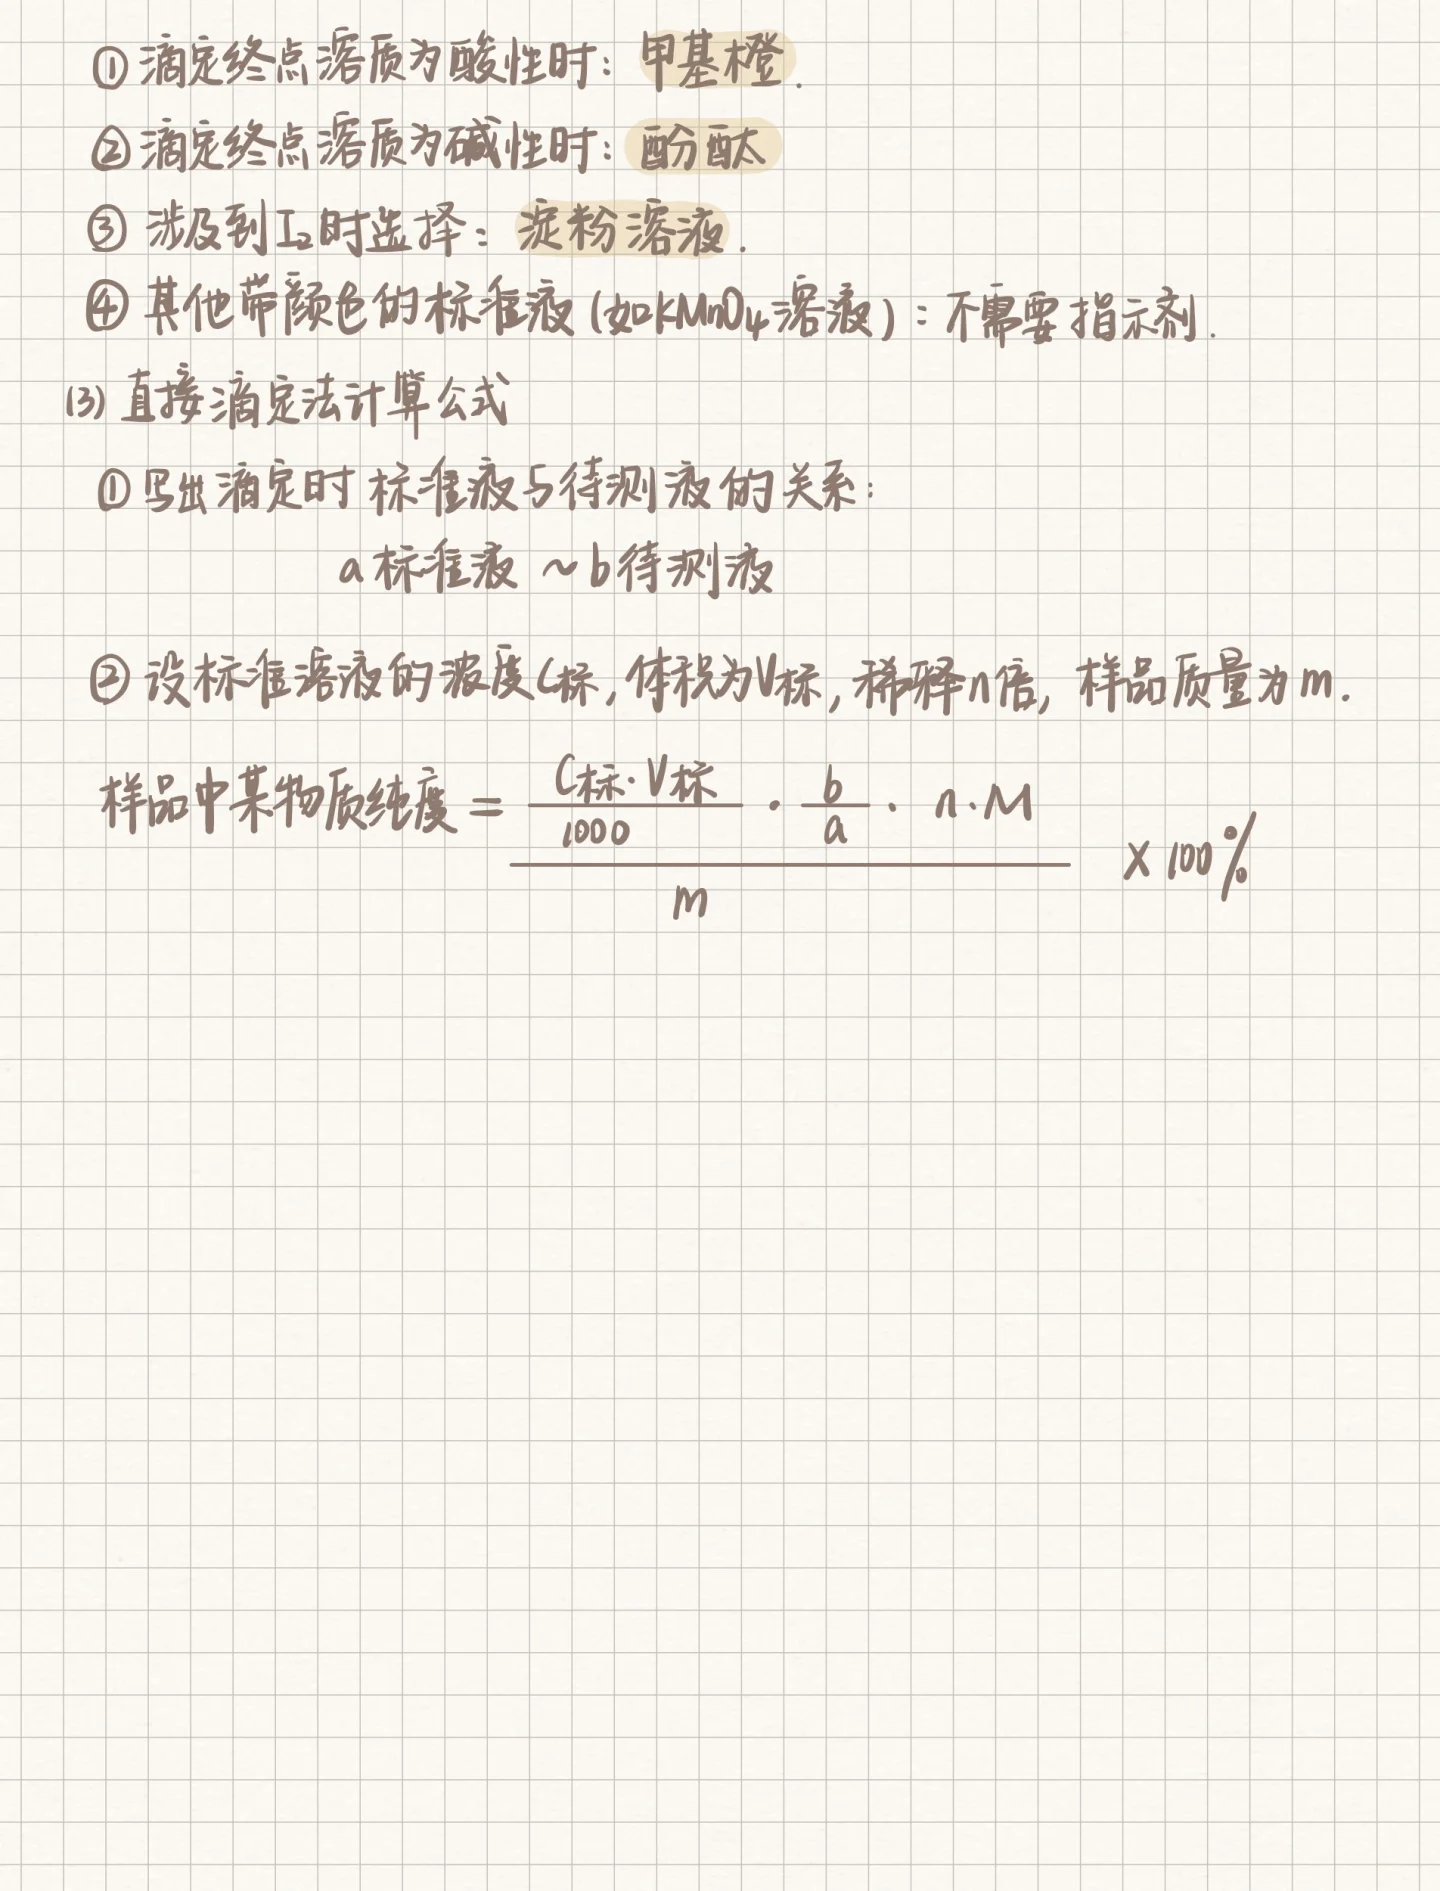 ① 滴定终点溶质为酸性时: 甲基橙.
② 滴定终点溶质为碱性时: 酚酞
③ 涉及到I₂时选择: 淀粉溶液.
④ 其他带颜色的标准液(如KMnO₄溶液): 不需要指示剂.
(3) 直接滴定法计算公式
① 写出滴定时标准液与待测液的关系:
a标准液 ~ b待测液
② 设标准溶液的浓度C标, 体积为V标, 稀释n倍, 样品质量为m.
样品中某物质纯度 = C标·V标/1000 · b/a · n·M / m × 100%